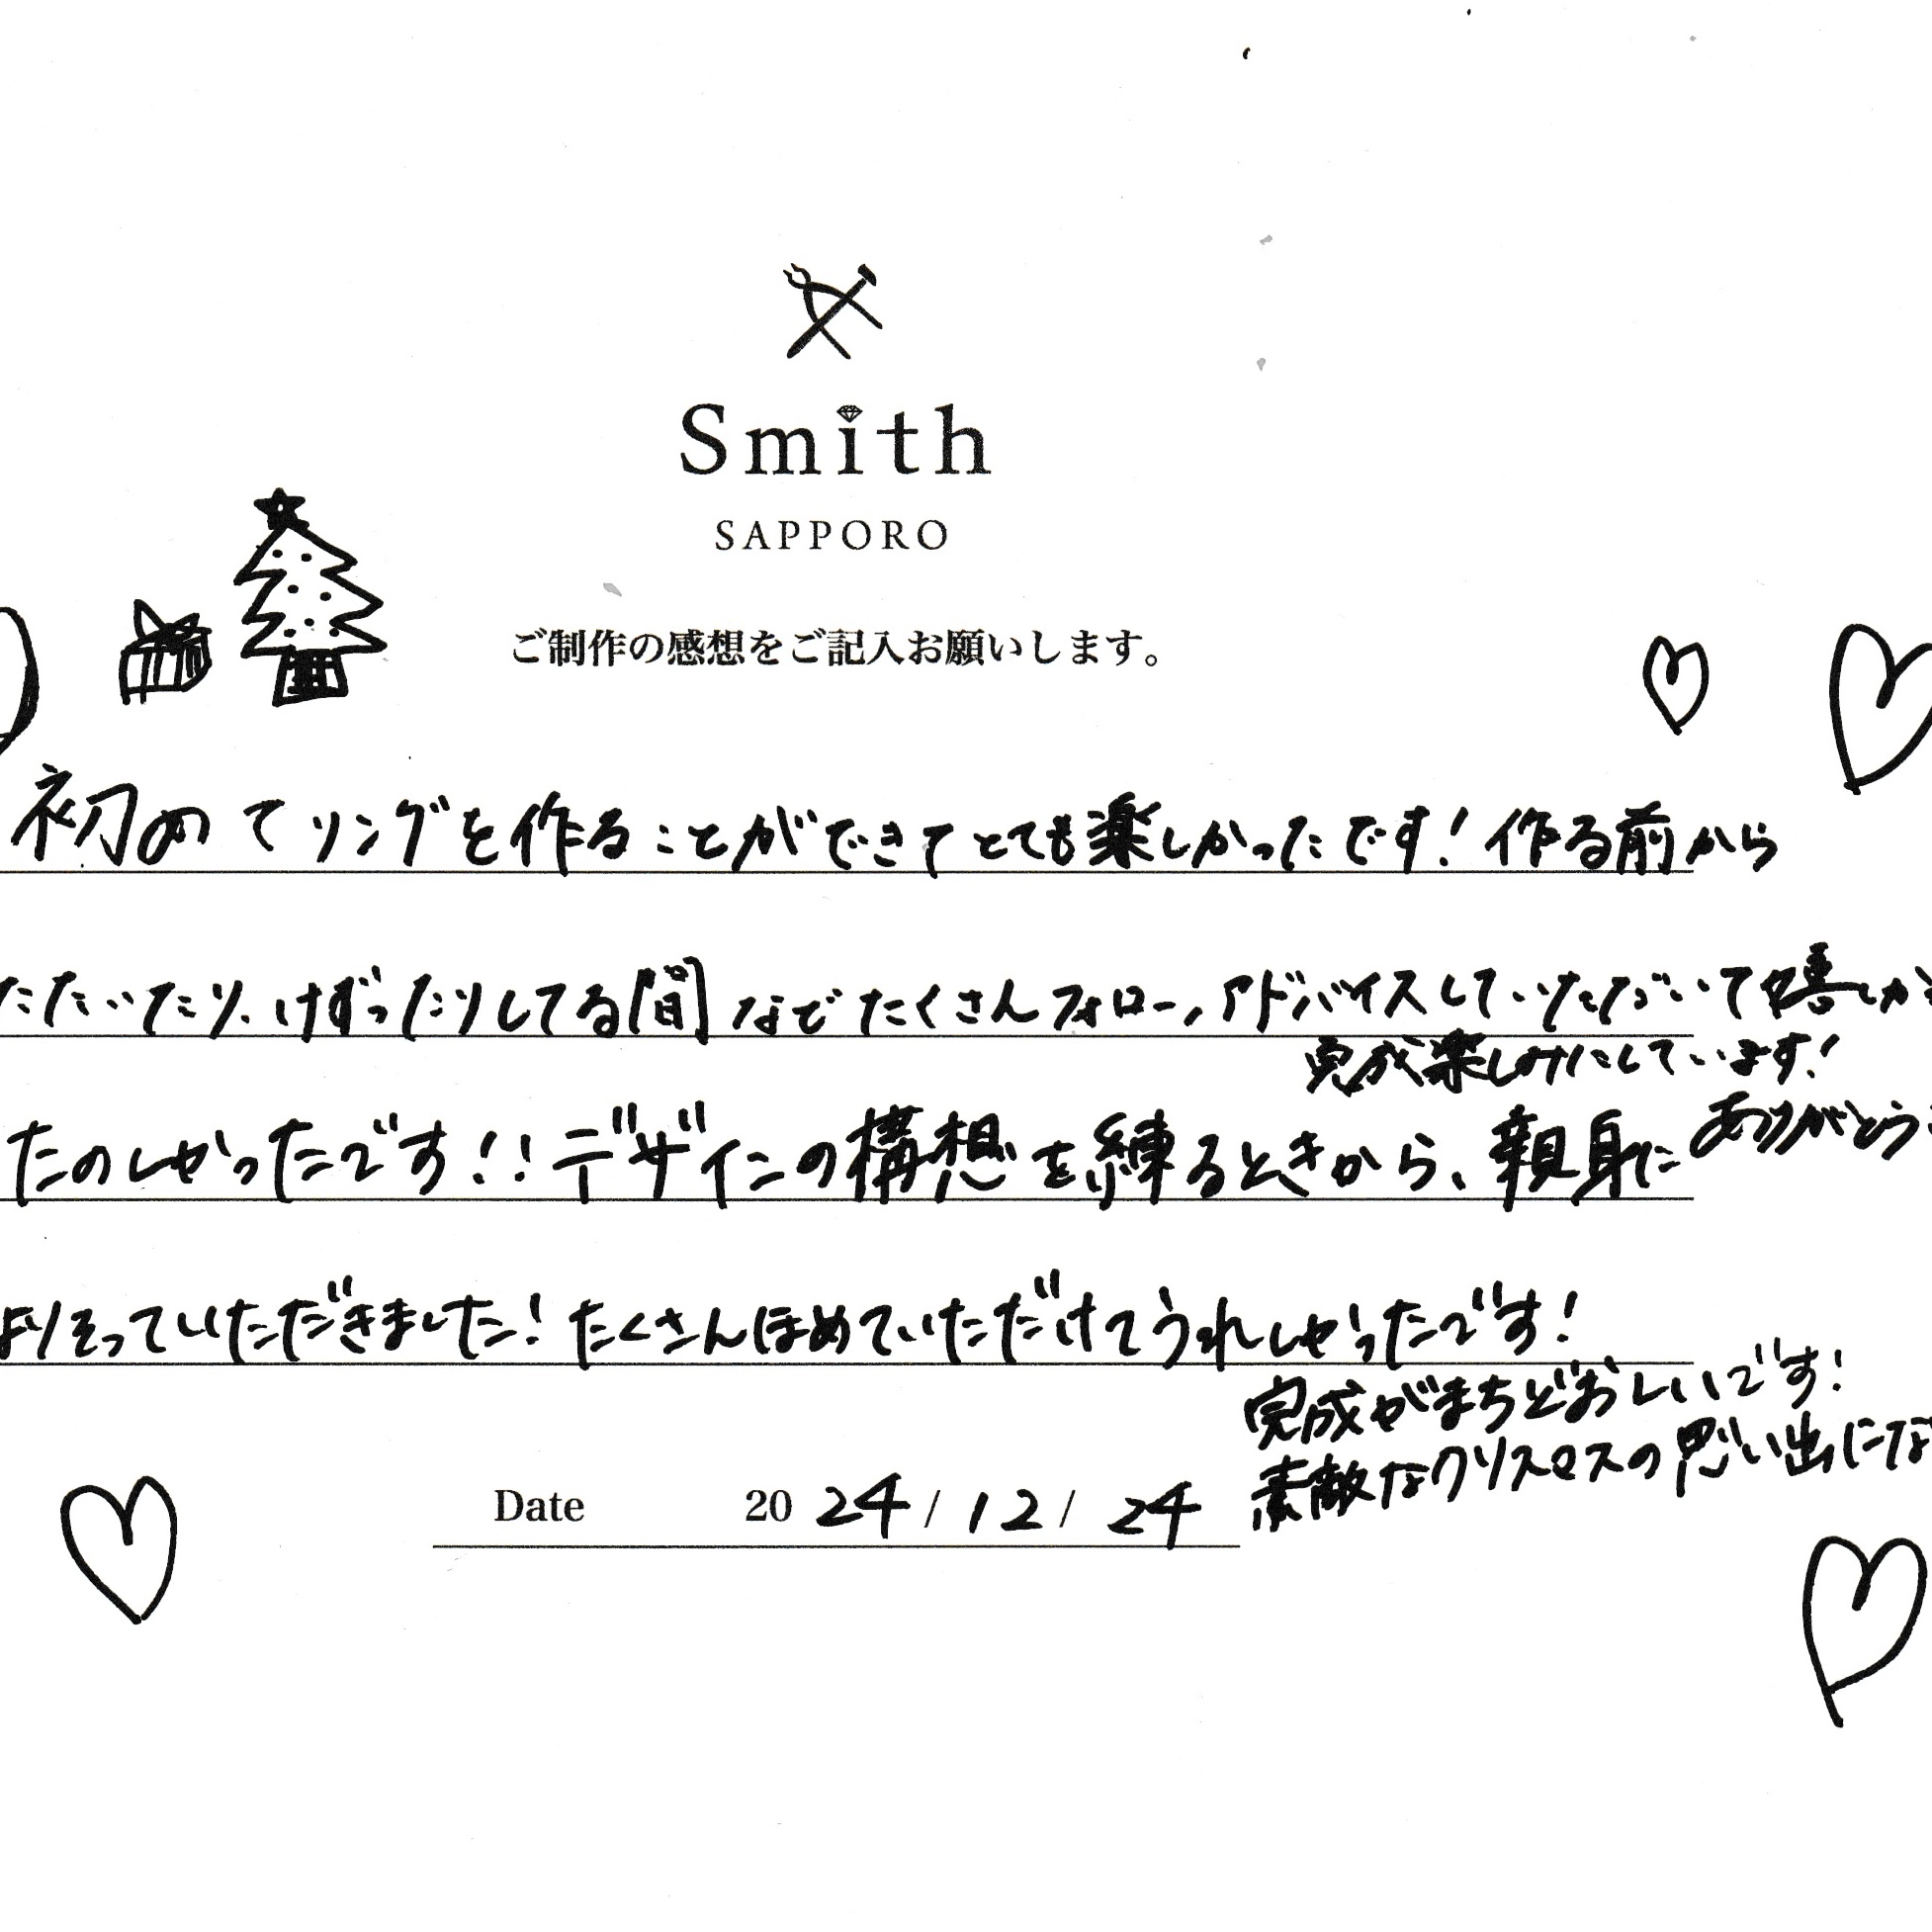 Smith
SAPPORO
ご制作の感想をご記入お願いします。
初めてリングを作ることができてとても楽しかったです!作る前から
たたいたり、けずったりしてる間などたくさんフォロー、アドバイスしていただいて嬉しか
完成楽しみにしています!
ありがとう
たのしかったです!!デザインの構想を練るときから、親身に
よりそっていただきました!たくさんほめていただけてうれしかったです!
完成がまちどおしいです!
素敵なクリスマスの思い出にな
Date 2024/12/24